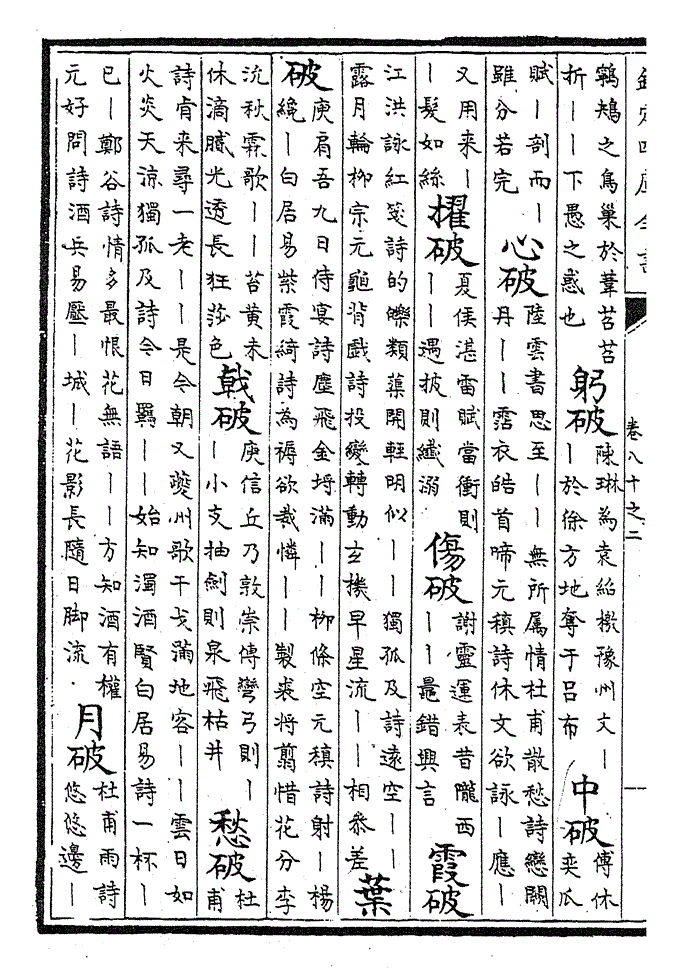 欽定四庫全書
卷八十之二
鸋鴂之鳥巢於葦苕苕
折丨丨下愚之惑也
躬破
陳琳為袁紹檄豫州文丨
丨於徐方地奪于呂布
中破
傅休
奕瓜
賦丨剖而丨
雖分若完
心破
陸雲書思至丨丨無所屬情杜甫散愁詩戀闕
丹丨丨霑衣皓首啼元稹詩休文欲詠丨應丨
又用来丨
丨髮如絲
擢破
夏侯湛雷賦當衝則
丨丨遇披則纖溺
傷破
謝靈運表昔隴西
丨丨鼂錯興言
霞破
江洪詠紅箋詩的皪類蕖開輕明似丨丨獨孤及詩遠空丨丨
露月輪柳宗元龜背戲詩投變轉動玄機早星流丨丨相參差
葉
破
庾肩吾九日侍宴詩塵飛金埒滿丨丨柳條空元稹詩射丨楊
纔丨白居易紫霞綺詩為褥欲裁憐丨丨製裘將翦惜花分李
流秋霖歌丨丨苔黃未
休滴膩光透長狂莎色
戟破
庾信丘乃敦崇傳彎弓則丨
丨小支抽劍則泉飛枯井
愁破
杜
甫
詩肯来尋一老丨丨是今朝又夔州歌干戈滿地客丨丨雲日如
火炎天涼獨孤及詩今日羈丨丨始知濁酒賢白居易詩一杯丨
已丨鄭谷詩情多最恨花無語丨丨方知酒有權
元好問詩酒兵易壓丨城丨花影長隨日脚流
月破
杜甫雨詩
悠悠邊丨